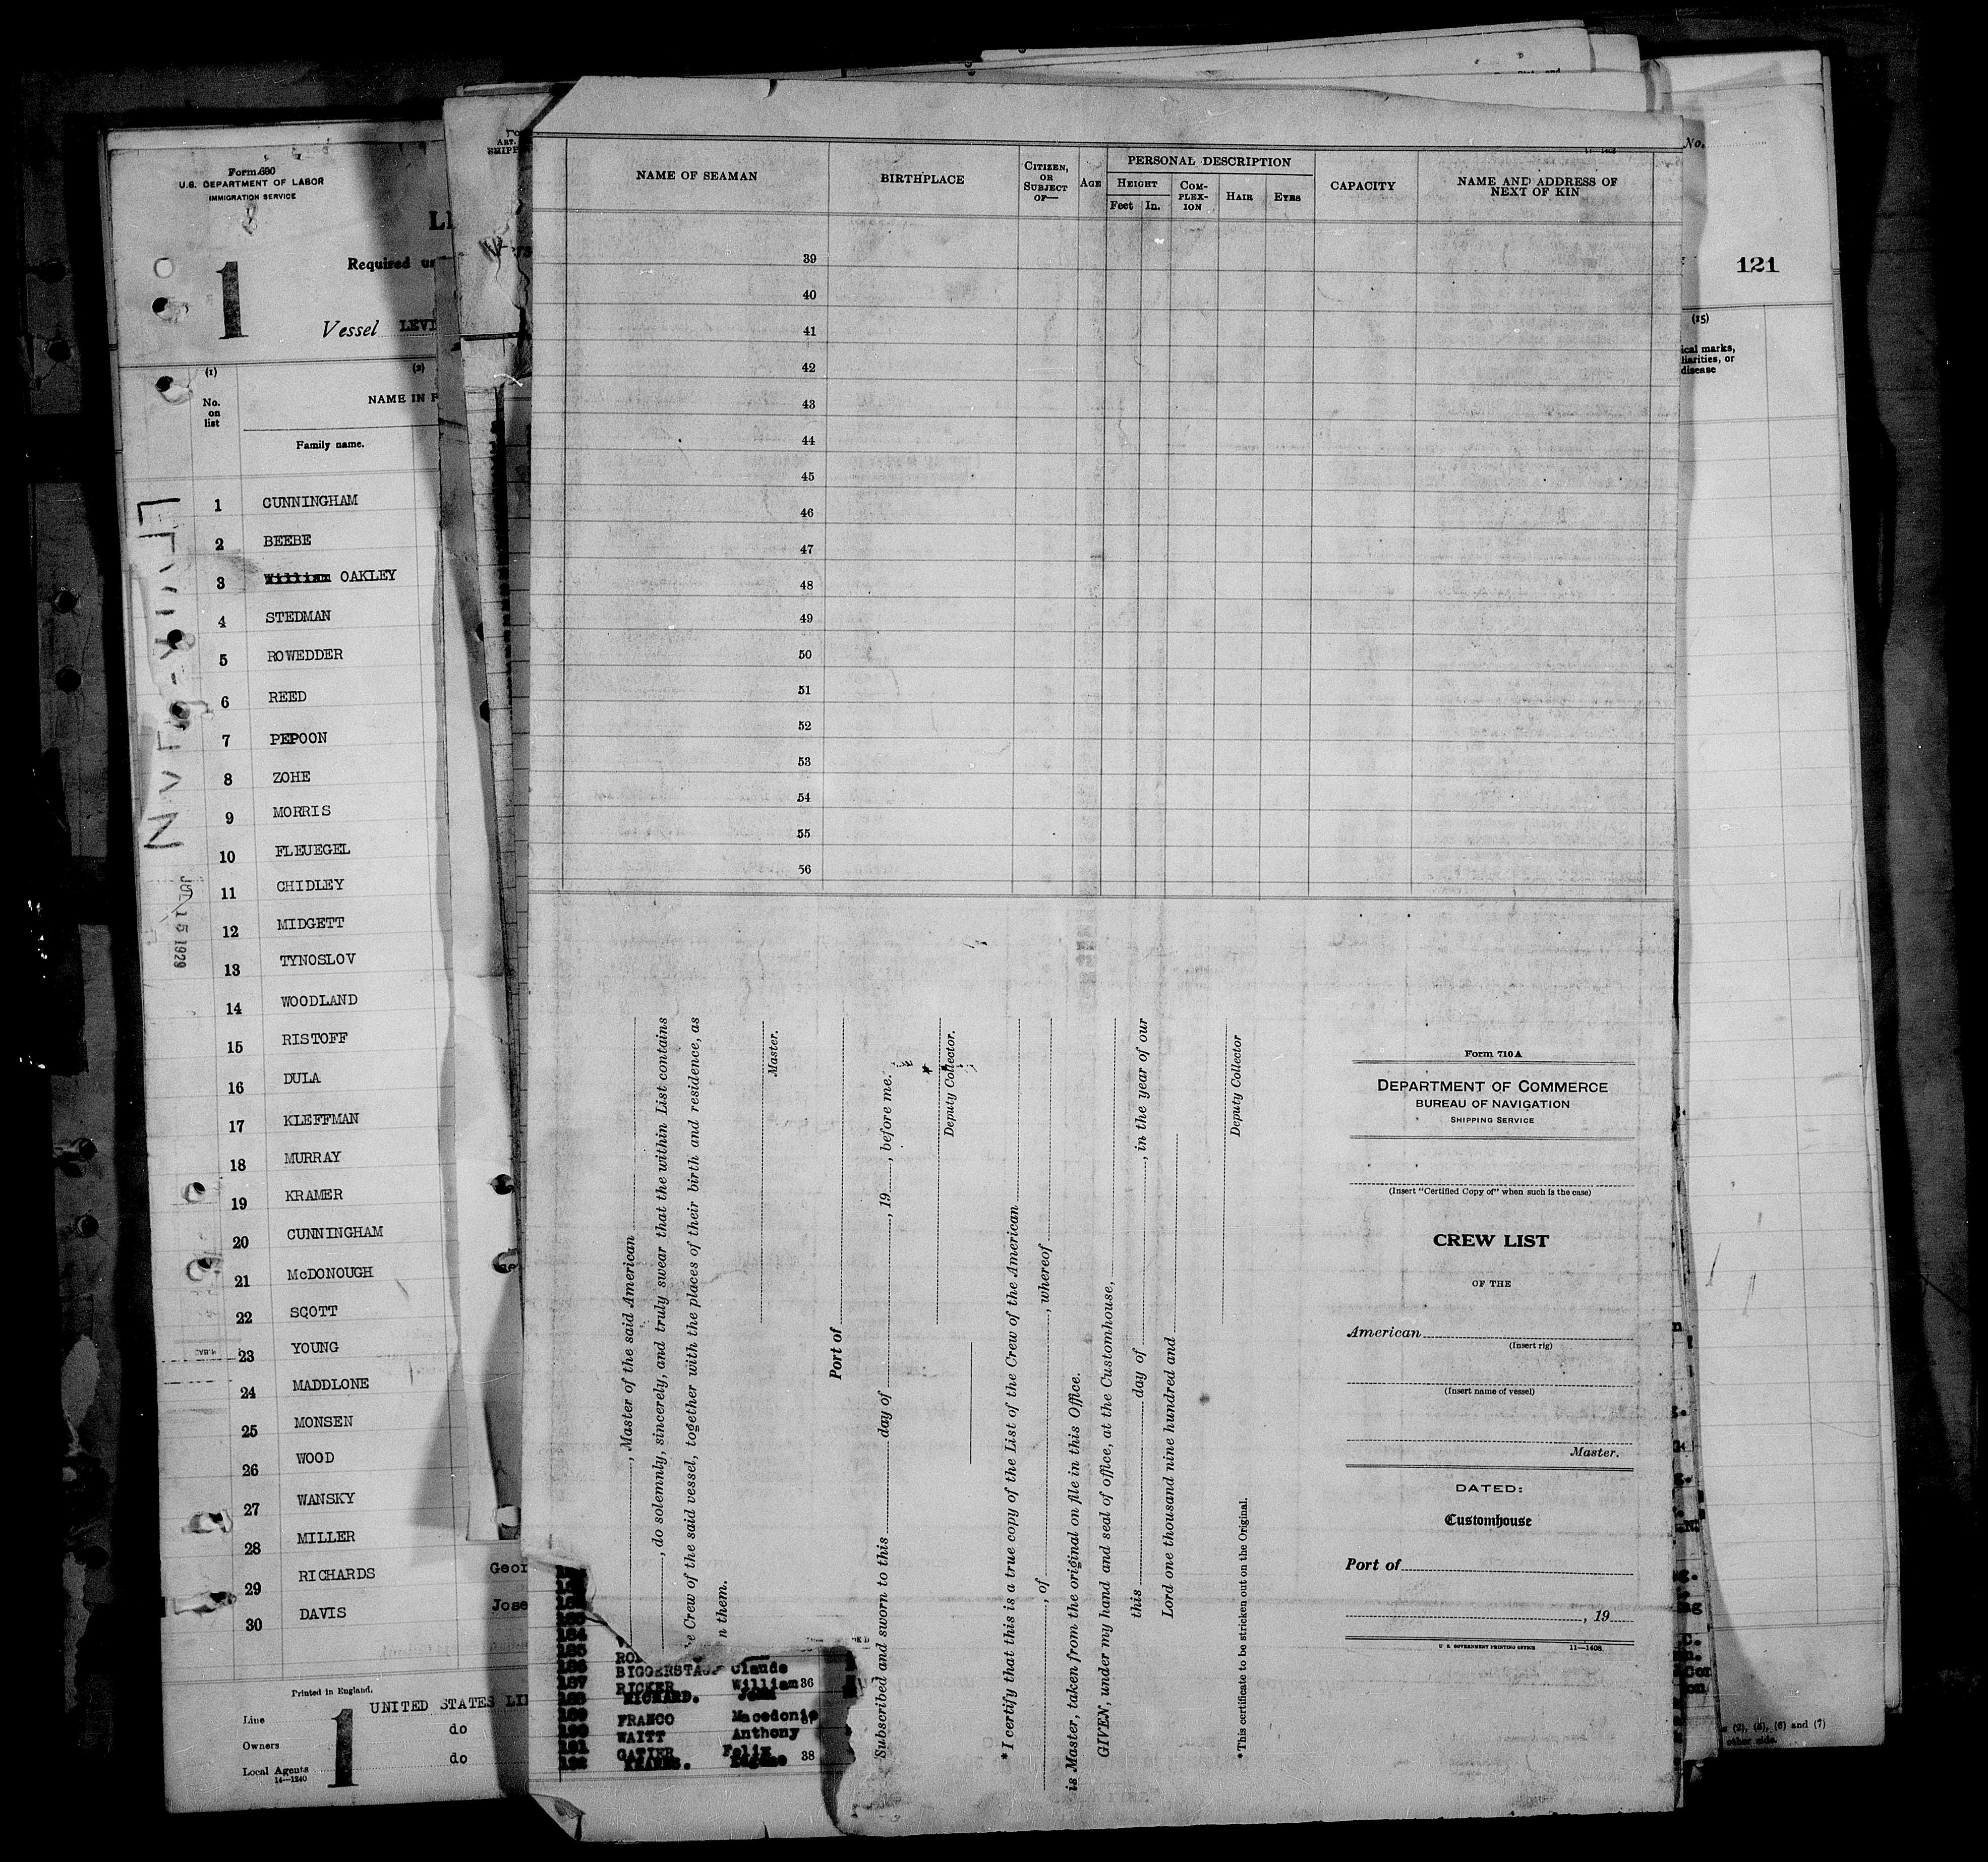 Form 680
U.S. DEPARTMENT OF LABOR
IMMIGRATION SERVICE
1
Required
Vessel LEVI
(1)
(2)
No.
on
list
NAME IN F
Family name.
1 CUNNINGHAM
2 BEEBE
3 William OAKLEY
4 STEDMAN
5 ROWEDDER
6 REED
7 PEPOON
8 ZOHE
9 MORRIS
10 FLEUEGEL
11 CHIDLEY
12 MIDGETT
13 TYNOSLOV
14 WOODLAND
15 RISTOFF
16 DULA
17 KLEFFMAN
18 MURRAY
19 KRAMER
20 CUNNINGHAM
21 McDONOUGH
22 SCOTT
23 YOUNG
24 MADDLONE
25 MONSEN
26 WOOD
27 WANSKY
28 MILLER
29 RICHARDS Geor
30 DAVIS Jose
JUL 15 1929
Printed in England.
Line UNITED STATES LI
Owners do
Local Agents do
14—1240
1
NAME OF SEAMAN
BIRTHPLACE
CITIZEN,
OR
SUBJECT
OF—
AGE
PERSONAL DESCRIPTION
HEIGHT
Feet In.
COM-
PLEX-
ION
HAIR
EYES
CAPACITY
NAME AND ADDRESS OF
NEXT OF KIN
39
40
41
42
43
44
45
46
47
48
49
50
51
52
53
54
55
56
, Master of the said American
, do solemnly, sincerely, and truly swear that the within List contains
e Crew of the said vessel, together with the places of their birth and residence, as
n them.
Master.
Port of
Subscribed and sworn to this day of , 19 , before me.
Deputy Collector.
*I certify that this is a true copy of the List of the Crew of the American
, of , whereof
is Master, taken from the original on file in this Office.
GIVEN, under my hand and seal of office, at the Customhouse,
this day of , in the year of our
Lord one thousand nine hundred and
Deputy Collector
*This certificate to be stricken out on the Original.
Form 710A
DEPARTMENT OF COMMERCE
BUREAU OF NAVIGATION
SHIPPING SERVICE
(Insert "Certified Copy of" when such is the case)
CREW LIST
OF THE
American
(Insert rig)
(Insert name of vessel)
Master.
DATED:
Customhouse
Port of
, 19
U. S. GOVERNMENT PRINTING OFFICE 11—1408
184
185
186 BIGGERSTA Claude
187 RICKER William 36
188 RICHARD. John
189 FRANCO Macedonio
190 WAITT Anthony
191 GATIER Felix 38
192 Eugene
No.
121
(15)
ical marks,
liarities, or
disease
(2), (5), (6) and (7)
other side.